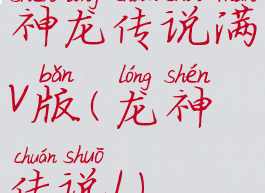 神龙传说满
bǎn lóng shén
V版(龙神
chuán shuō
传说)